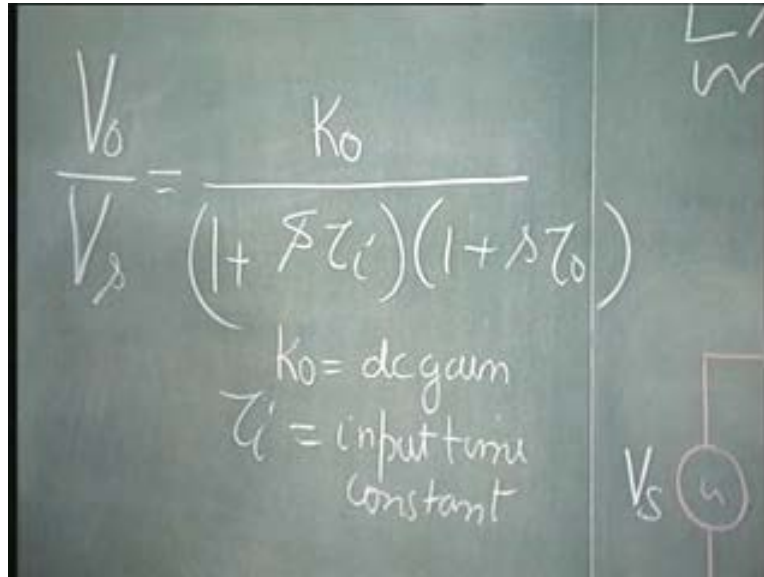 V₀/Vₛ = K₀/((1+ sτᵢ)(1+ sτ₀))
K₀ = dc gain
τᵢ = input time
constant
Vₛ